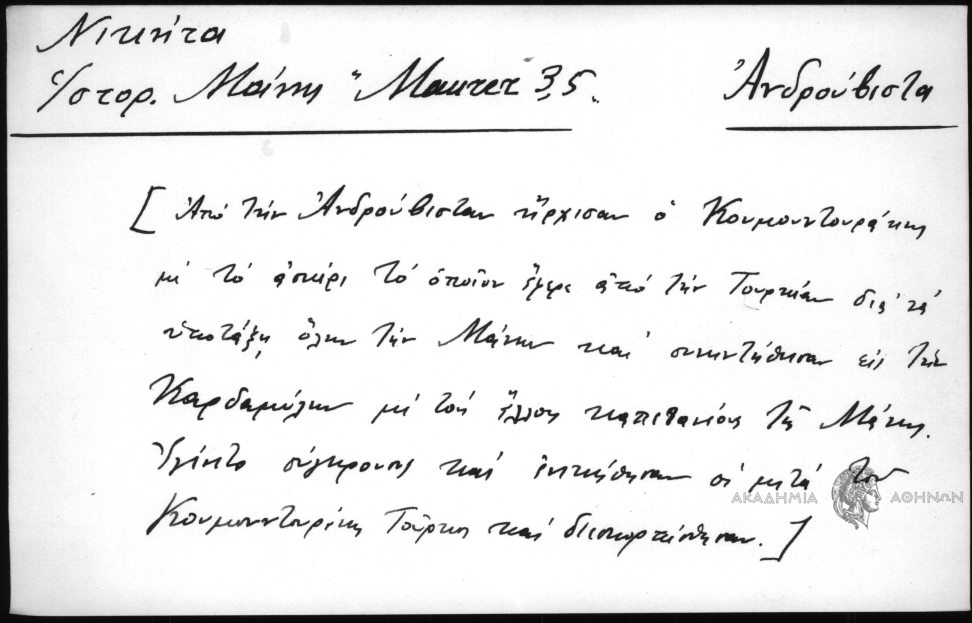 Νικήτα
Ἱστορ. Μάνης " Maurer 35.
Ἀνδρούβιστα
[ Ἀπό τήν Ἀνδρούβισταν ἤρχισαν ὁ Κουμουντουράκης
μέ τό ἀσκέρι τό ὁποῖον ἔφερε ἀπό τήν Τουρκίαν διά νά
ὑποτάξῃ ὅλην τήν Μάνην καί συνηντήθησαν εἰς τήν
Καρδαμύλην μέ τούς ἄλλους καπιτανέους τῆς Μάνης.
Ἐγίνετο σύγκρουσις καί ἐνικήθησαν οἱ μετά τοῦ
Κουμουντουράκη Τοῦρκοι καί διεσκορπίσθησαν. ]
ΑΚΑΔΗΜΙΑ ΑΘΗΝΩΝ